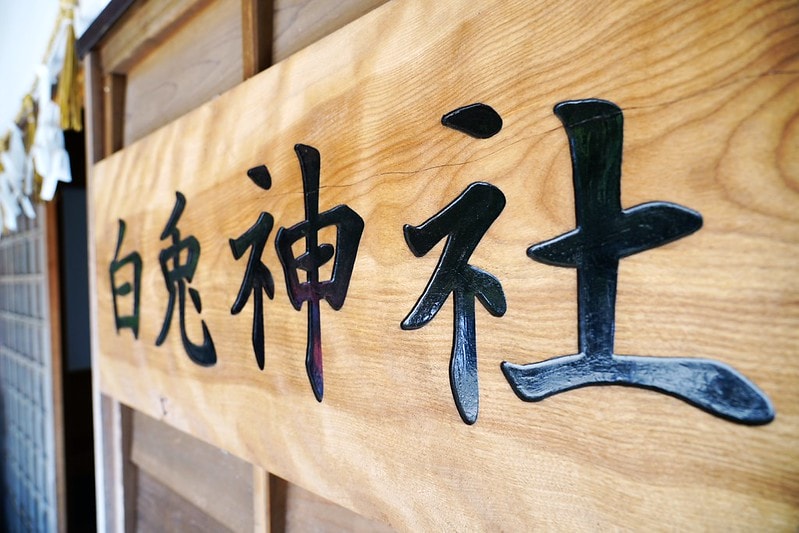 白兎神社